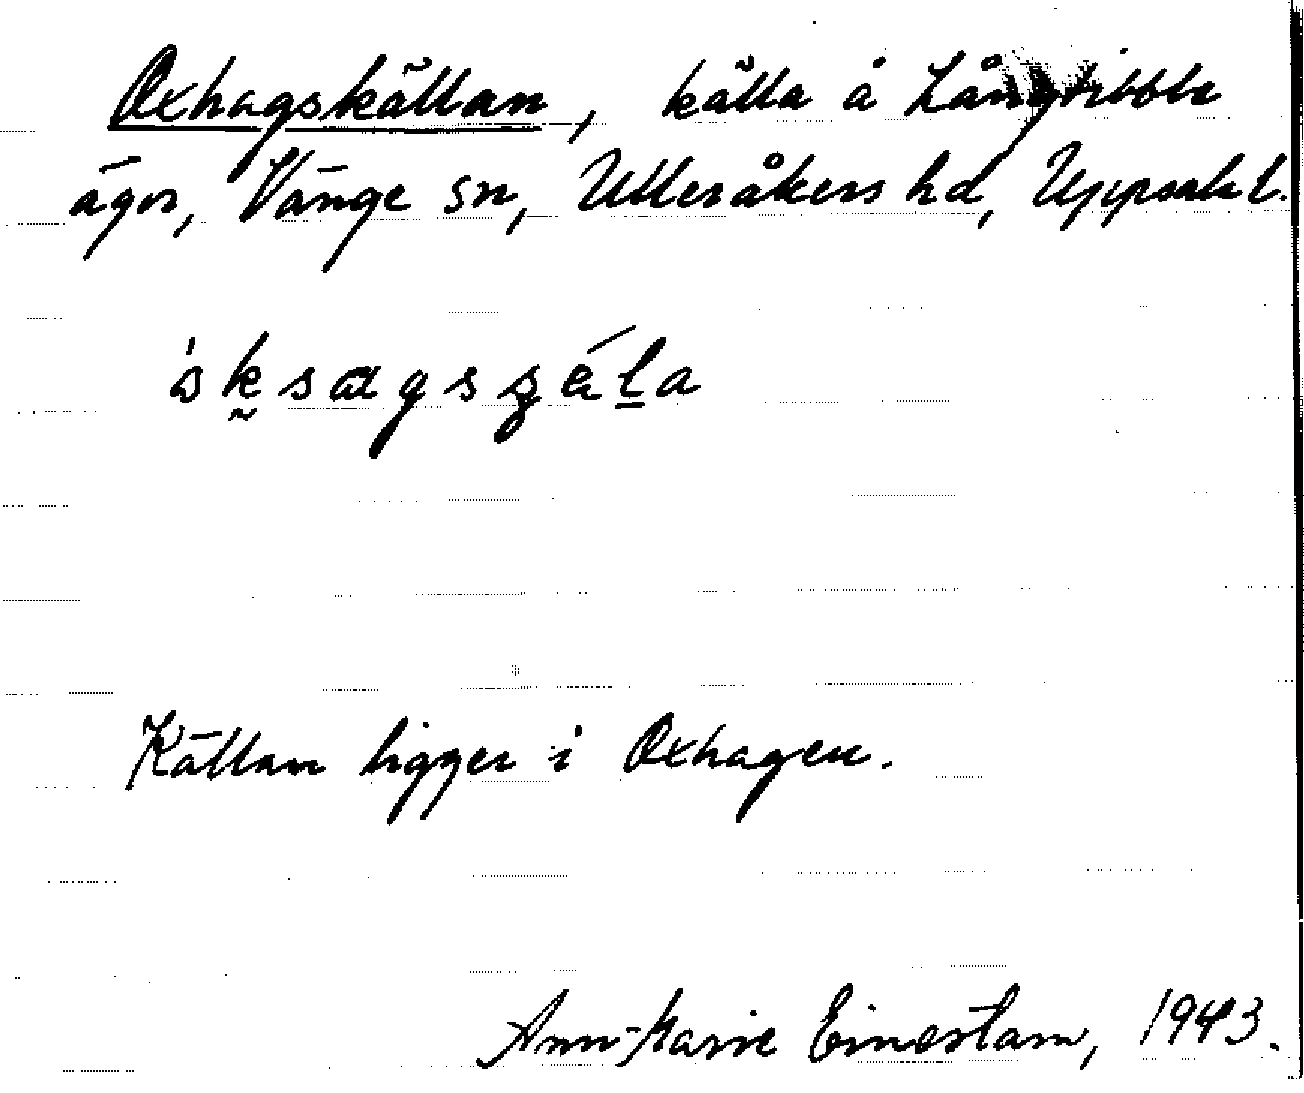 Oxhagskällan, källa å Långtibble
ägor, Vänge sn, Ulleråkers hd, Uppsala l.
Källan ligger i Oxhagen.
Ann-Marie Einestam, 1943.